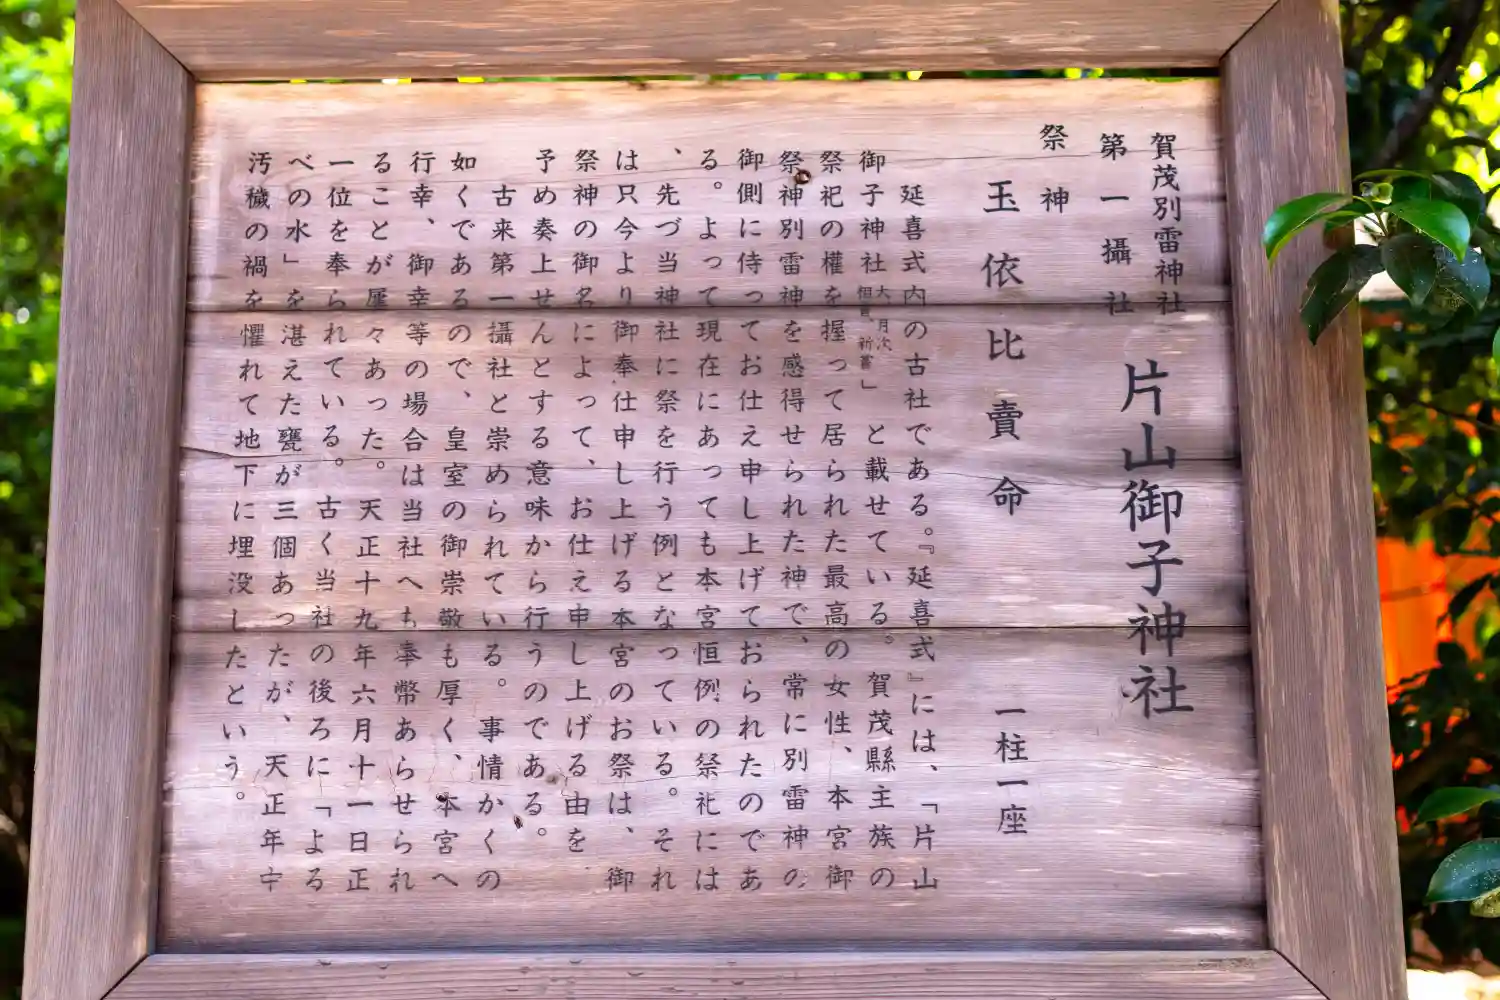 賀茂別雷神社
第一攝社
片山御子神社
祭神
玉依比賣命
一柱一座
延喜式内の古社である。『延喜式』には、「片山
御子神社大月次
相嘗、新嘗」と載せている。賀茂縣主族の
祭祀の權を握って居られた最高の女性、本宮御
祭神別雷神を感得せられた神で、常に別雷神の
御側に侍ってお仕え申し上げておられたのであ
る。よって現在にあっても本宮恒例の祭祀には
、先づ当神社に祭を行う例となっている。それ
は只今より御奉仕申し上げる本宮のお祭は、御
祭神の御名によって、お仕え申し上げる由を
予め奏上せんとする意味から行うのである。
古来第一攝社と崇められている。事情かくの
如くであるので、皇室の御崇敬も厚く、本宮へ
行幸、御幸等の場合は当社へも奉幣あらせられ
ることが屢々あった。天正十九年六月十一日正
一位を奉られている。古く当社の後ろに「よる
べの水」を湛えた甕が三個あったが、天正年中
汚穢の禍を懼れて地下に埋没したという。